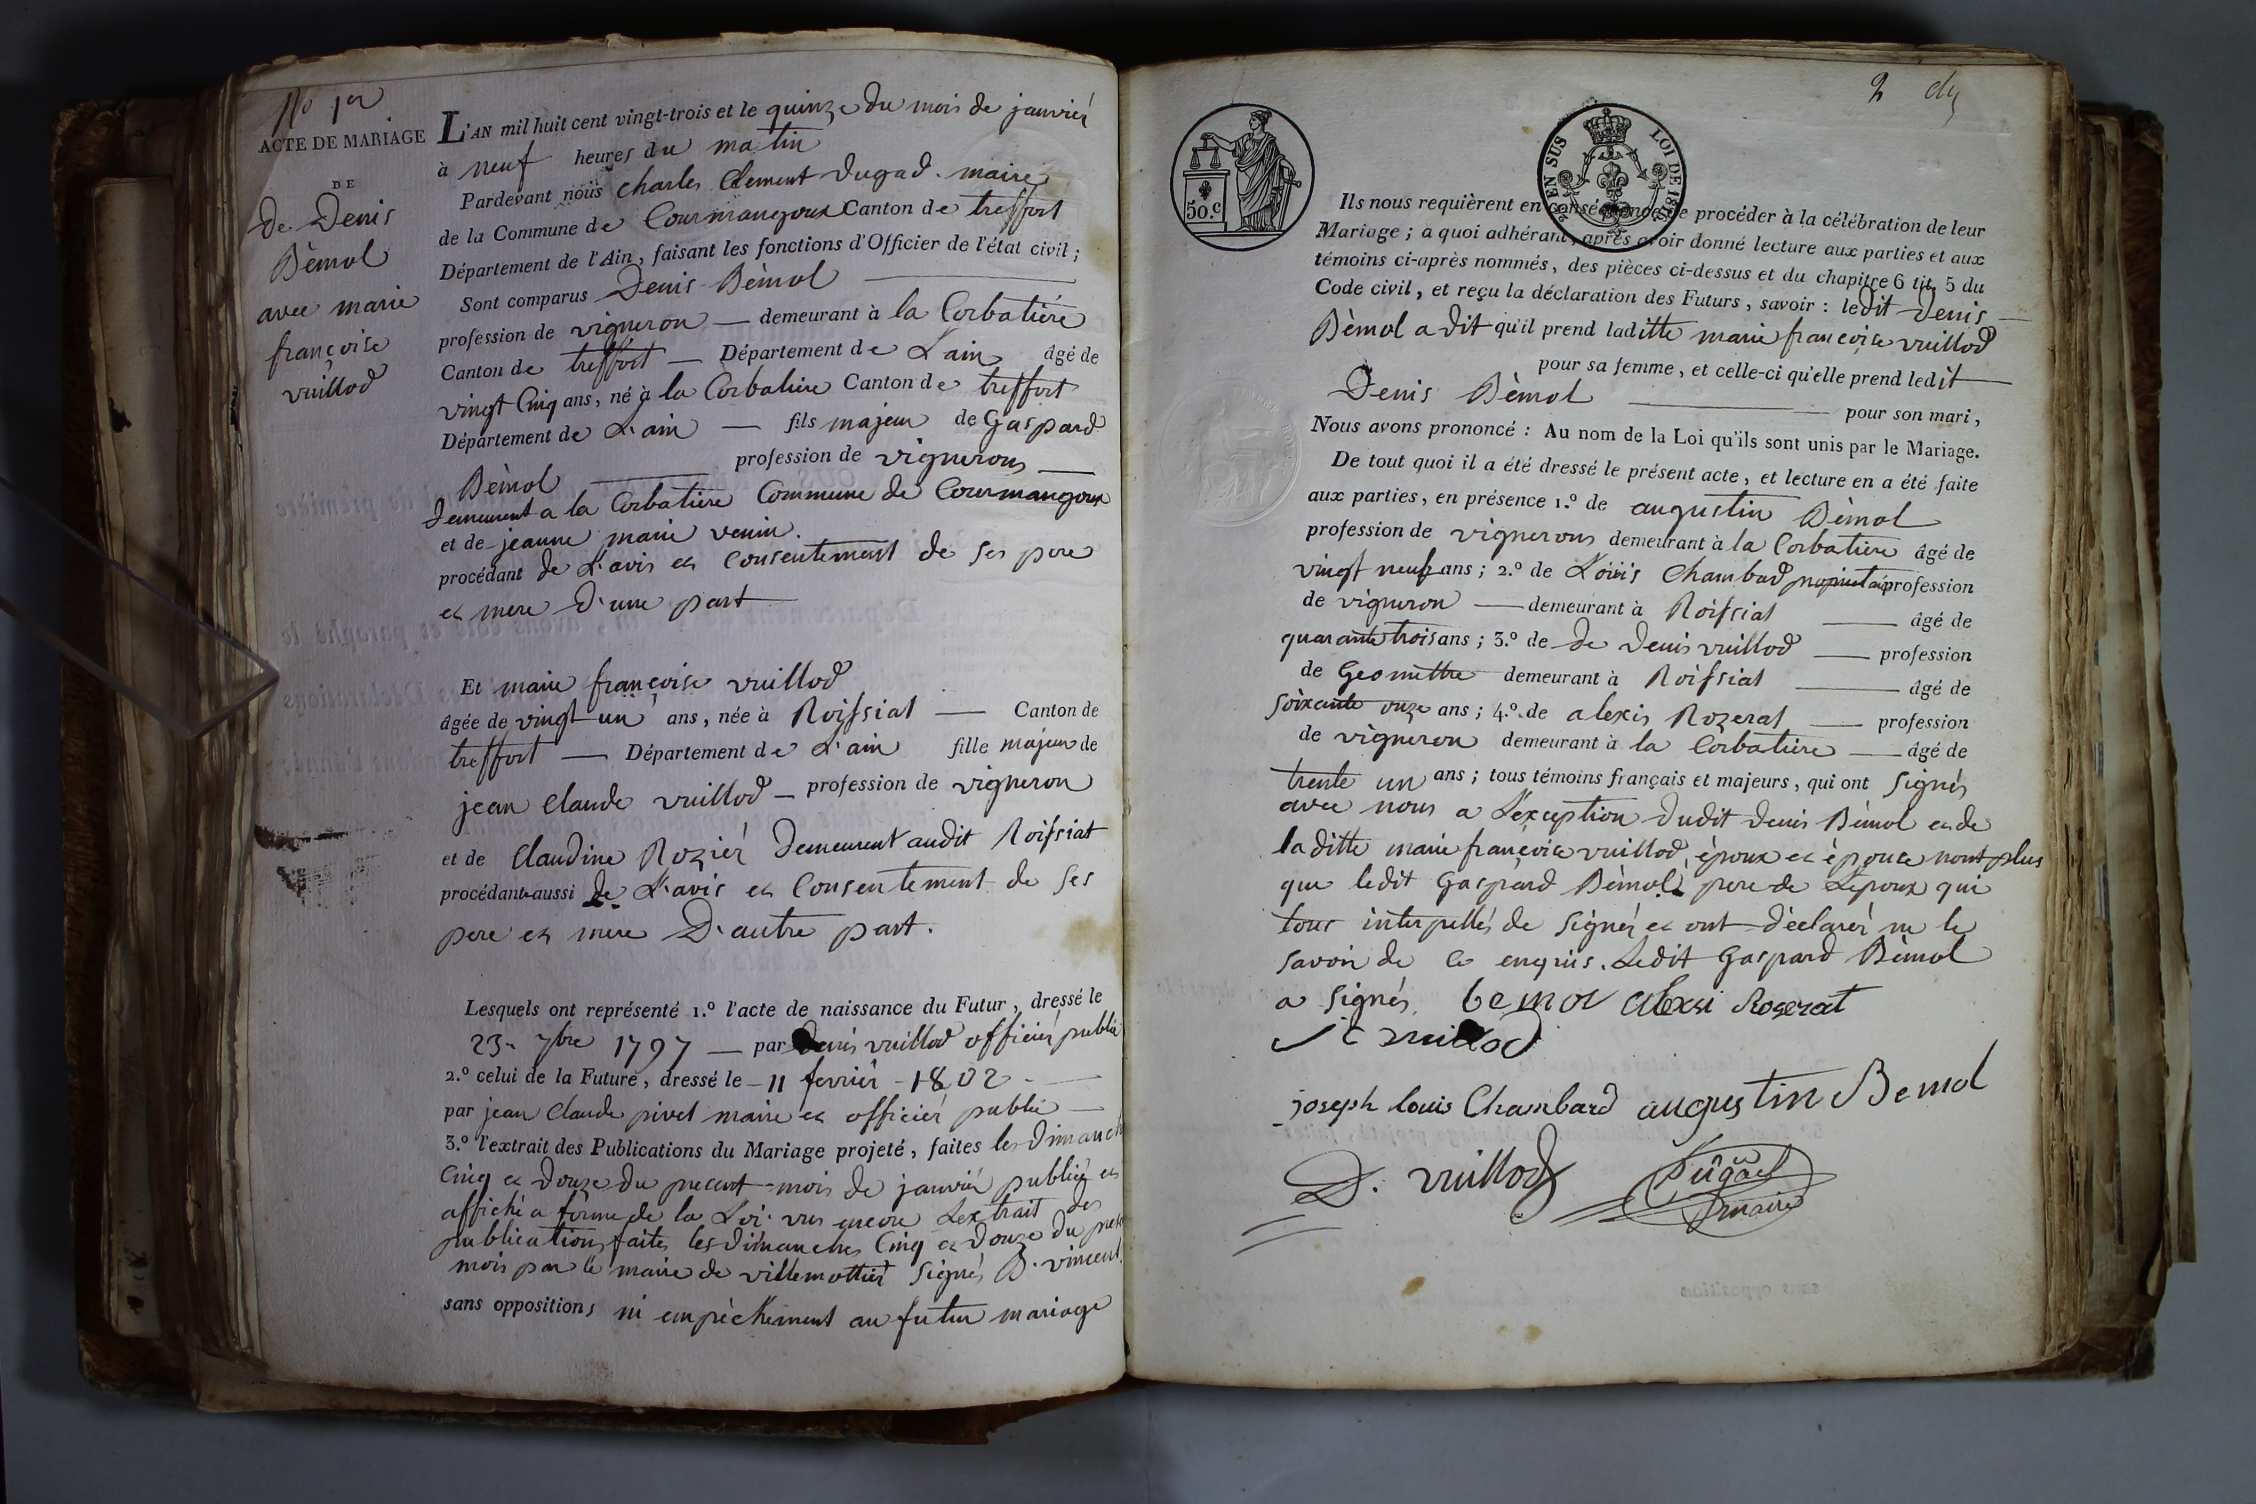 No 1er
ACTE DE MARIAGE
DE
de Denis
Bèmol
avec marie
françoise
vuillod
L'AN mil huit cent vingt-trois et le quinze du mois de janviér
à neuf heures du matin
Pardevant nous Charles Clement Dugad . maire
de la Commune de Courmangoux Canton de treffort
Département de l'Ain, faisant les fonctions d'Officier de l'état civil ;
Sont comparus Denis Bèmol
profession de vigneron — demeurant à la Corbatiére
Canton de treffort — Département de L'ain âgé de
vingt Cinq ans, né à la Corbatiere Canton de treffort
Département de L'ain — fils majeur de Gaspard
Bèmol — profession de vignerons —
demeurent a la Corbatiere Commune de Courmangoux
et de jeanne marie venin .
procédant de L'avis et Consentement de ses pere
et mere D'une part
Et marie françoise vuillod
âgée de vingt un ans, née à Roissiat — Canton de
treffort — Département de L'ain fille majeur de
jean Claude vuillod — profession de vigneron
et de Claudine Roziér Demeurent audit Roissiat
procédant aussi de L'avis et Consentement de ses
pere et mere D'autre part .
Lesquels ont représenté 1.º l'acte de naissance du Futur, dressé le
23. 7bre 1797 — par Denis vuillod officiér public
2.º celui de la Future, dressé le 11 fevriér 1802
par jean Claude pivet maire et officiér public
3.º l'extrait des Publications du Mariage projeté, faites les Dimanch
Cinq et Douze du present mois de janviér publiér et
affiché a forme de la Loi . vus encore L'extrait des
publications faites les dimanches Cinq et Douze du
mois par le maire de villemottiér signés B . vincent .
sans oppositions ni empèchement au futur mariage
2 
50.C
EN SUS
LOI DE
Ils nous requièrent en conséquence de procéder à la célébration de leur
Mariage ; à quoi adhérant, après avoir donné lecture aux parties et aux
témoins ci-après nommés, des pièces ci-dessus et du chapitre 6 tit. 5 du
Code civil, et reçu la déclaration des Futurs, savoir : ledit Denis —
Bèmol a dit qu'il prend laditte marie françoise vuillod
pour sa femme, et celle-ci qu'elle prend ledit
Denis Bèmol — pour son mari,
Nous avons prononcé : Au nom de la Loi qu'ils sont unis par le Mariage.
De tout quoi il a été dressé le présent acte, et lecture en a été faite
aux parties, en présence 1.º de augustin Bèmol
profession de vignerons demeurant à la Corbatiere âgé de
vingt neuf ans ; 2.º de Louis Chambad profession
de vigneron — demeurant à Roissiat — âgé de
quarante trois ans ; 3.º de de Denis vuillod — profession
de Geomettre demeurant à Roissiat — âgé de
soixante onze ans ; 4.º de alexis Rozerat — profession
de vigneron demeurant à la Corbatiere — âgé de
trente un ans ; tous témoins français et majeurs, qui ont signés
avec nous a L'exception dudit Denis Bèmol et de
laditte marie françoise vuillod, époux et épouse nont plus
que ledit Gaspard Bèmol pere de L'epoux qui
tous interpellés de signér et ont déclarér ne le
savoir de ce enquis . Ledit Gaspard Bèmol
a signés . bemol alexi Rozerat
vuillod
joseph louis Chambard augustin Bemol
D. vuillod Dugad
maire